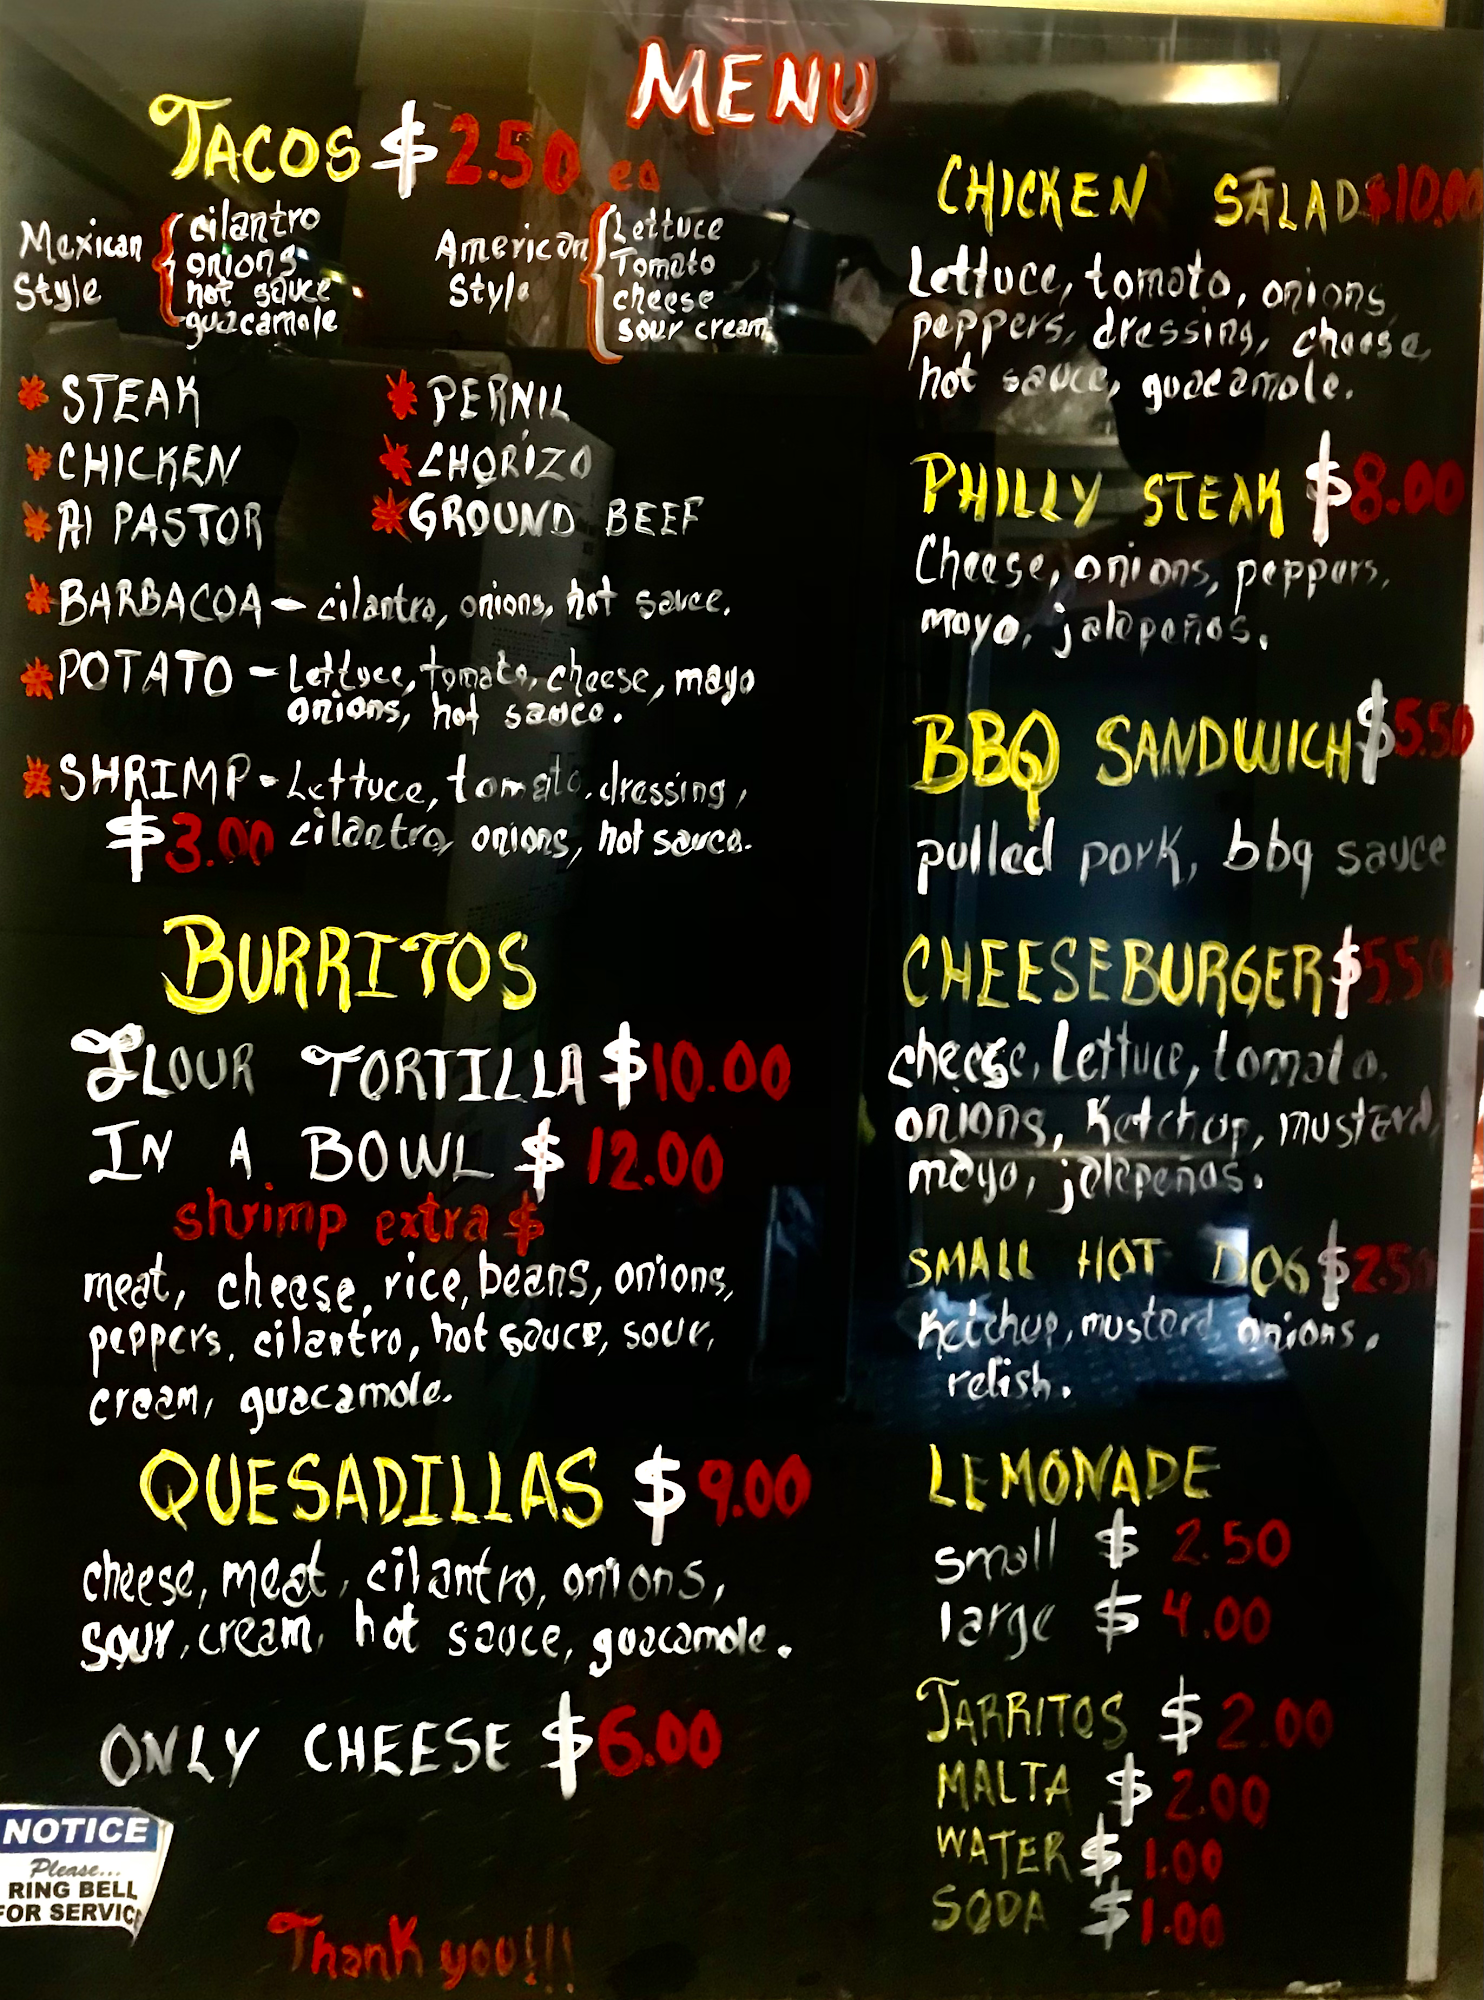 MENU
TACOS $2.50 ea
Mexican Style
cilantro
onions
hot sauce
guacamole
American Style
Lettuce
Tomato
cheese
sour cream
STEAK
CHICKEN
Al PASTOR
PERNIL
CHORIZO
GROUND BEEF
BARBACOA - cilantro, onions, hot sauce.
POTATO - Lettuce, tomato, cheese, mayo
onions, hot sauce.
SHRIMP - Lettuce, tomato, dressing,
$3.00 cilantro, onions, hot sauce.
BURRITOS
FLOUR TORTILLA $10.00
IN A BOWL $12.00
shrimp extra $
meat, cheese, rice, beans, onions,
peppers, cilantro, hot sauce, sour,
cream, guacamole.
QUESADILLAS $9.00
cheese, meat, cilantro, onions,
sour, cream, hot sauce, guacamole.
ONLY CHEESE $6.00
NOTICE
Please...
RING BELL
FOR SERVICE
Thank you!!!
CHICKEN SALAD $10.00
Lettuce, tomato, onions,
peppers, dressing, cheese,
hot sauce, guacamole.
PHILLY STEAK $8.00
Cheese, onions, peppers,
mayo, jalapeños.
BBQ SANDWICH $5.50
pulled pork, bbq sauce
CHEESEBURGER $5.50
cheese, Lettuce, tomato,
onions, Ketchup, mustard,
mayo, jalapeños.
SMALL HOT DOG $2.50
Ketchup, mustard, onions,
relish.
LEMONADE
small $2.50
large $4.00
JARRITOS $2.00
MALTA $2.00
WATER $1.00
SODA $1.00